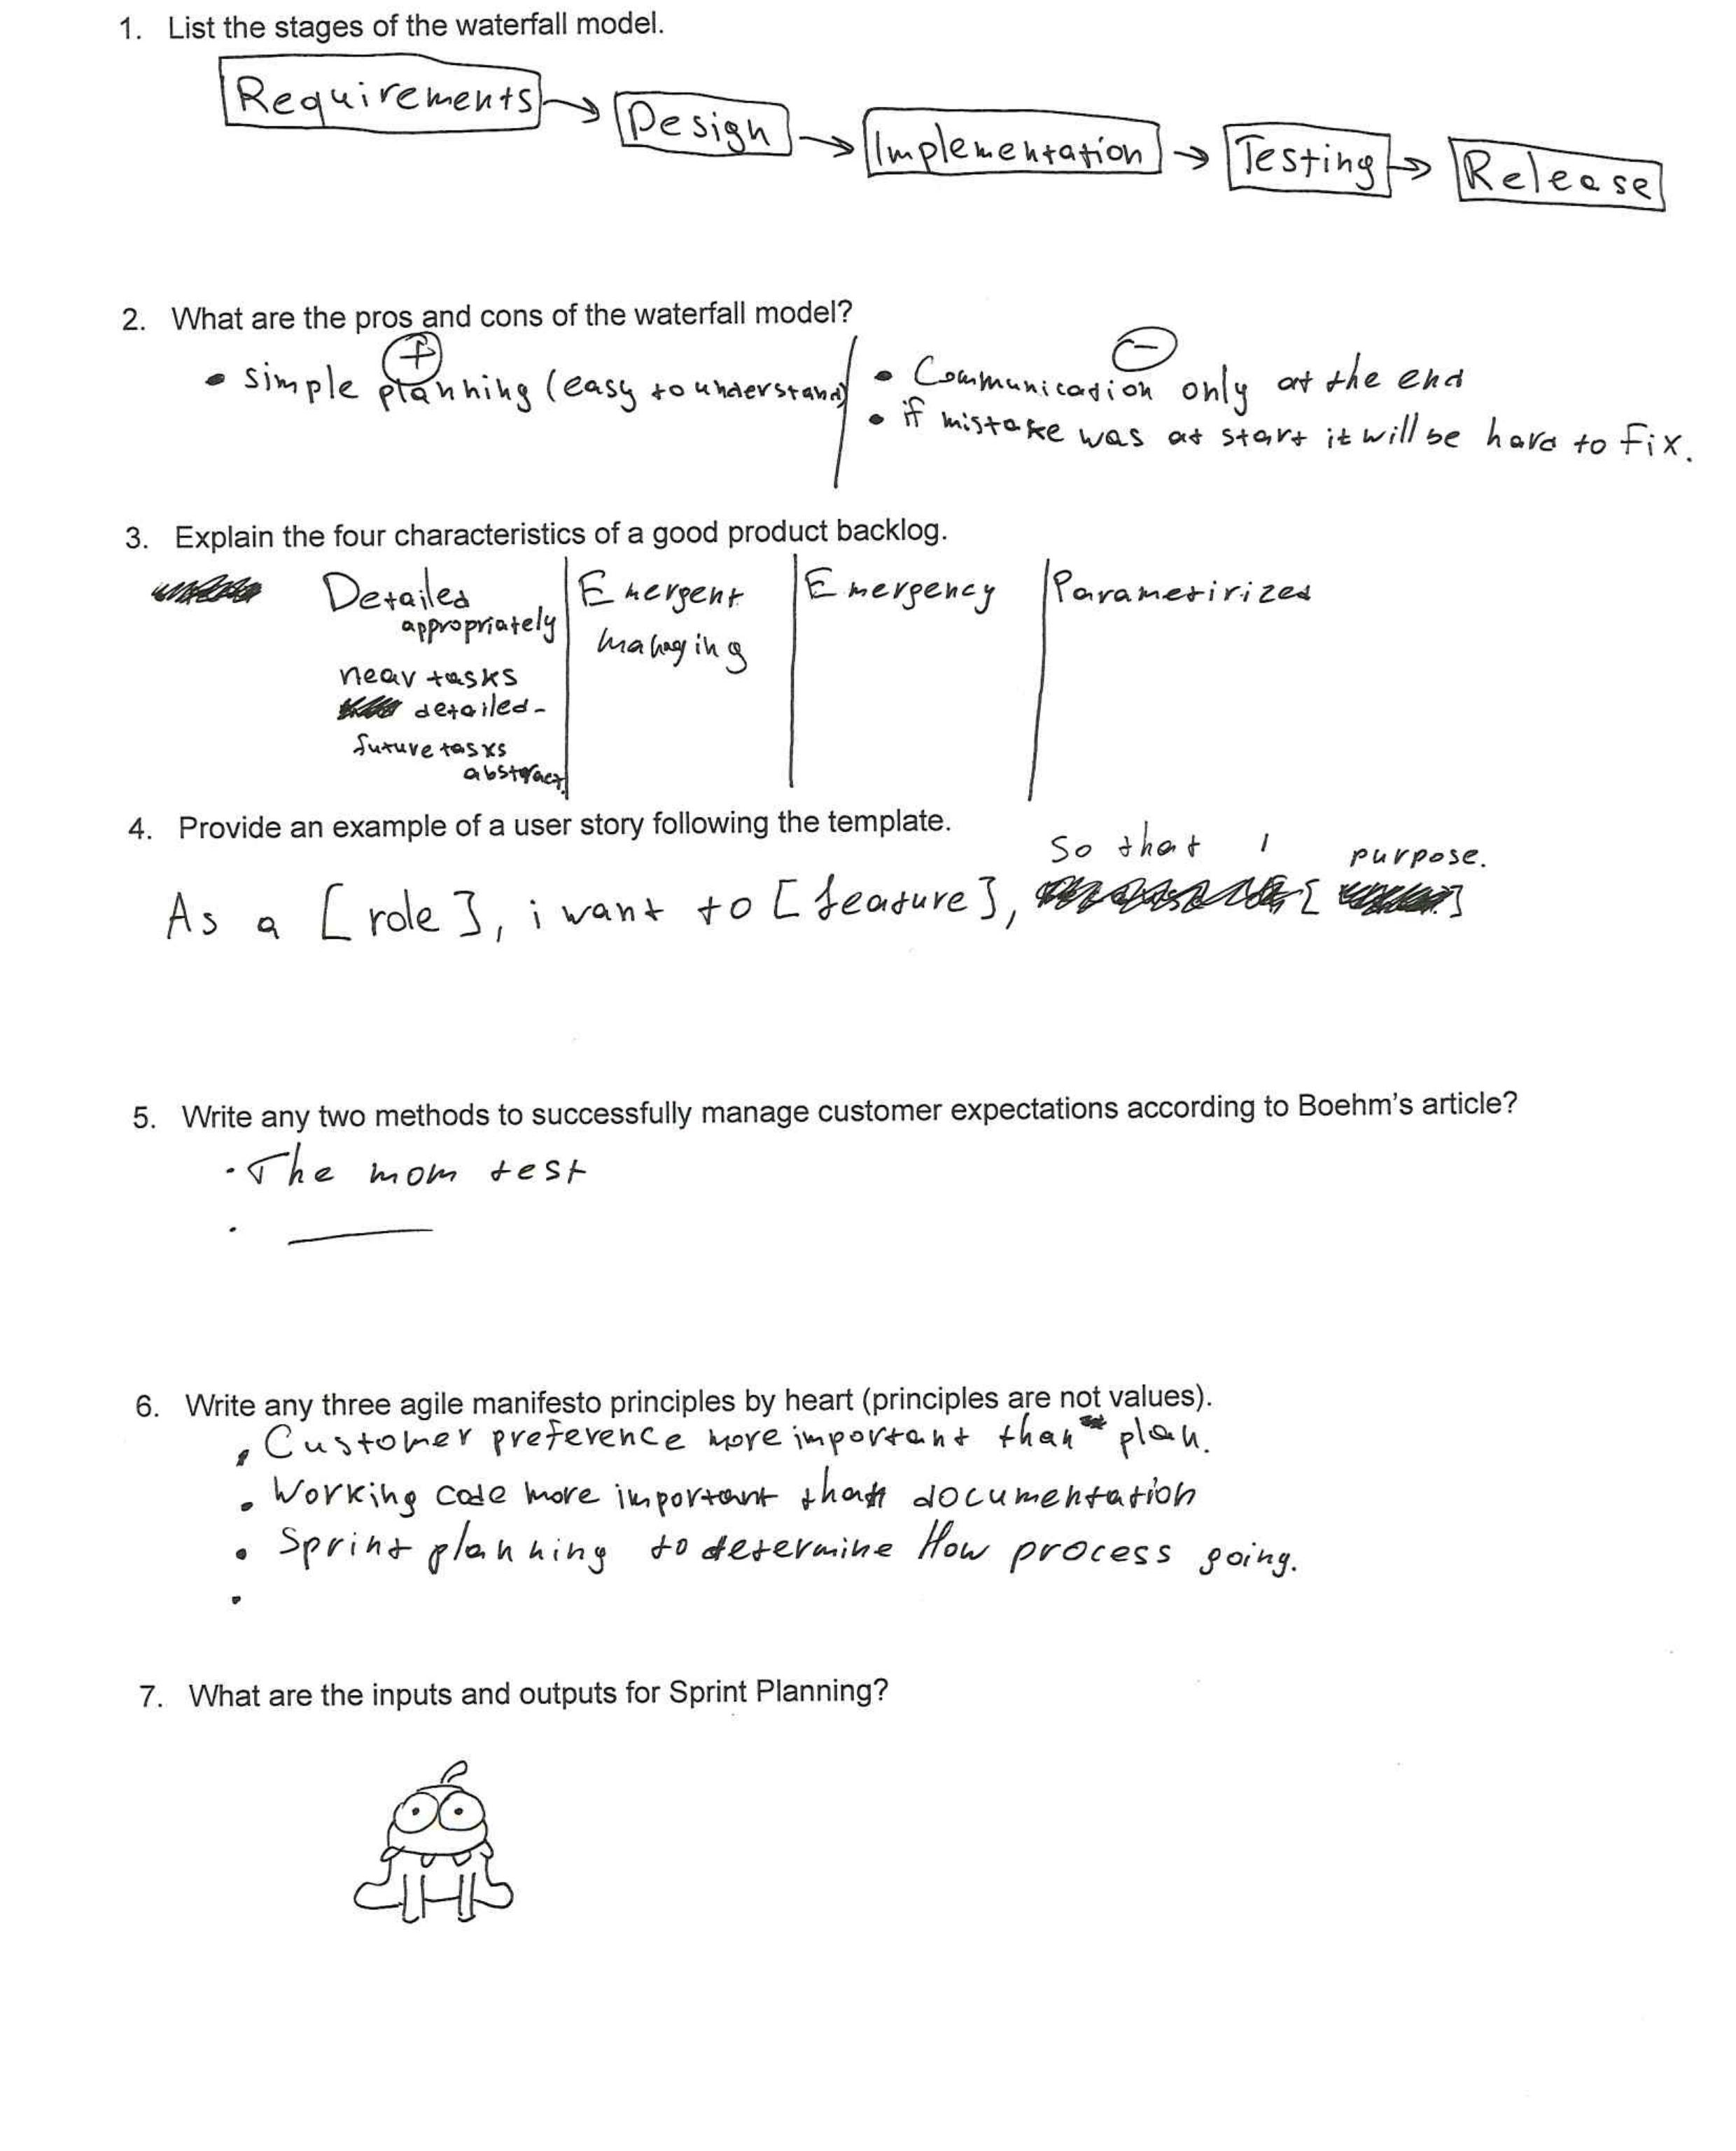 1. List the stages of the waterfall model.
Requirements → Design → Implementation → Testing → Release
2. What are the pros and cons of the waterfall model?
+ −
• simple planning (easy to understand)
• Communication only at the end
• if mistake was at start it will be hard to fix.
3. Explain the four characteristics of a good product backlog.
Detailed
appropriately
near tasks
detailed-
future tasks
abstract.
Emergent
managing
Emergency
Parametirized
4. Provide an example of a user story following the template.
As a [role], i want to [feature], so that I [purpose.]
5. Write any two methods to successfully manage customer expectations according to Boehm's article?
· The mom test
· —
6. Write any three agile manifesto principles by heart (principles are not values).
• Customer preference more important than plan.
• Working code more important than documentation
• Sprint planning to determine How process going.
•
7. What are the inputs and outputs for Sprint Planning?